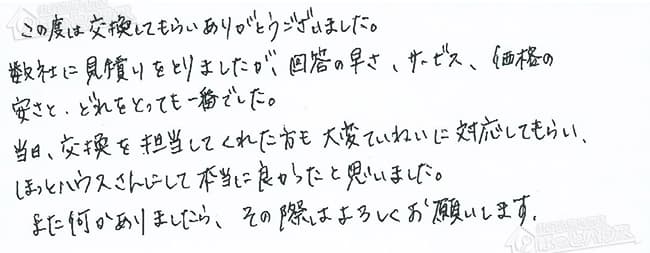 この度は交換してもらいありがとうございました。
数社に見積りをとりましたが、回答の早さ、サービス、価格の
安さと、どれをとっても一番でした。
当日、交換を担当してくれた方も大変ていねいに対応してもらい、
ほっとハウスさんにして本当に良かったと思いました。
また何かありましたら、その際はよろしくお願いします。